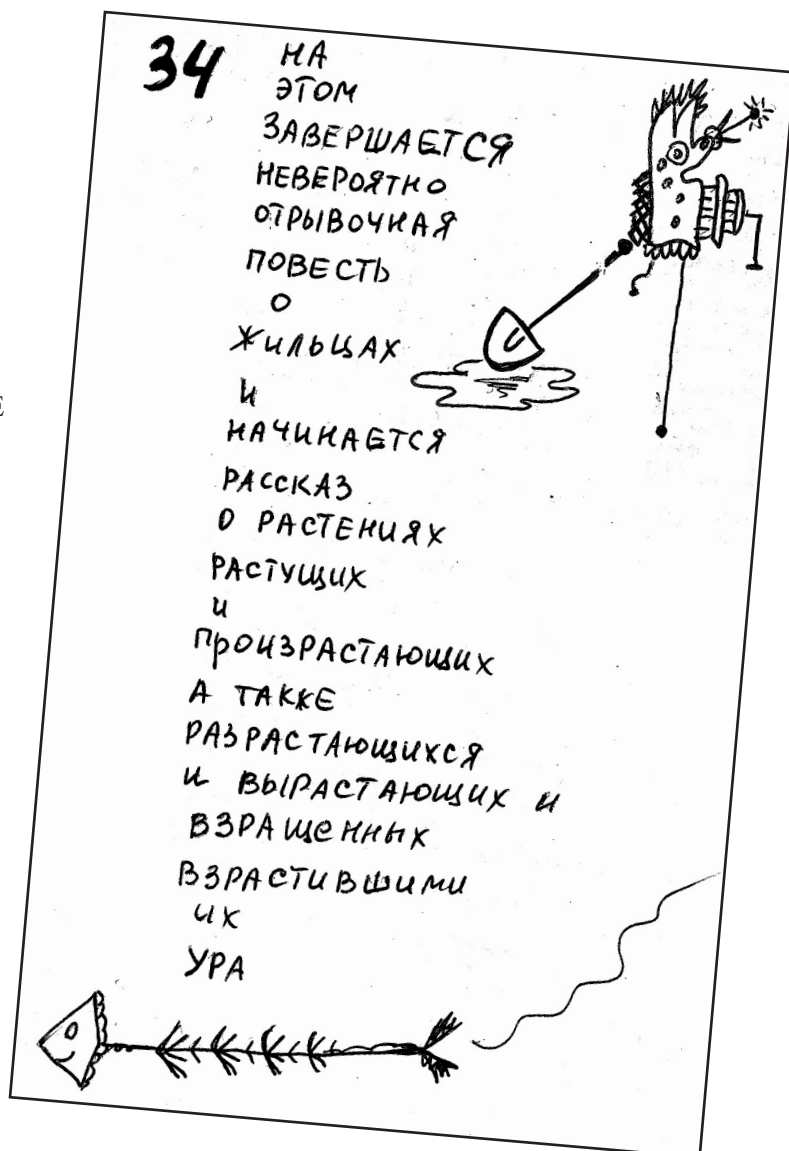 34
НА
ЭТОМ
ЗАВЕРШАЕТСЯ
НЕВЕРОЯТНО
ОТРЫВОЧНАЯ
ПОВЕСТЬ
О
ЖИЛЬЦАХ
И
НАЧИНАЕТСЯ
РАССКАЗ
О РАСТЕНИЯХ
РАСТУЩИХ
И
ПРОИЗРАСТАЮЩИХ
А ТАКЖЕ
РАЗРАСТАЮЩИХСЯ
И ВЫРАСТАЮЩИХ И
ВЗРАЩЕННЫХ
ВЗРАСТИВШИМИ
ИХ
УРА
Е